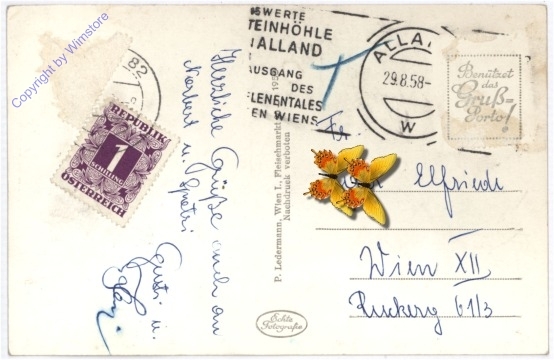 Copyright by Wimstore
82
REPUBLIK
1
SCHILLING
ÖSTERREICH
Herzliche Grüße auch an
Norbert u.
Gusti u.
P. Ledermann, Wien I., Fleischmarkt
Nachdruck verboten
Echte
Fotografie
SWERTE
TEINHÖHLE
ALLAND
AUSGANG
DES
LENENTALES
EN WIENS
ALLA
29.8.58-
W
Benützet
das
Gruß=
Porto!
Fr.
Elfriede
Wien XII
Ruckerg 61/3